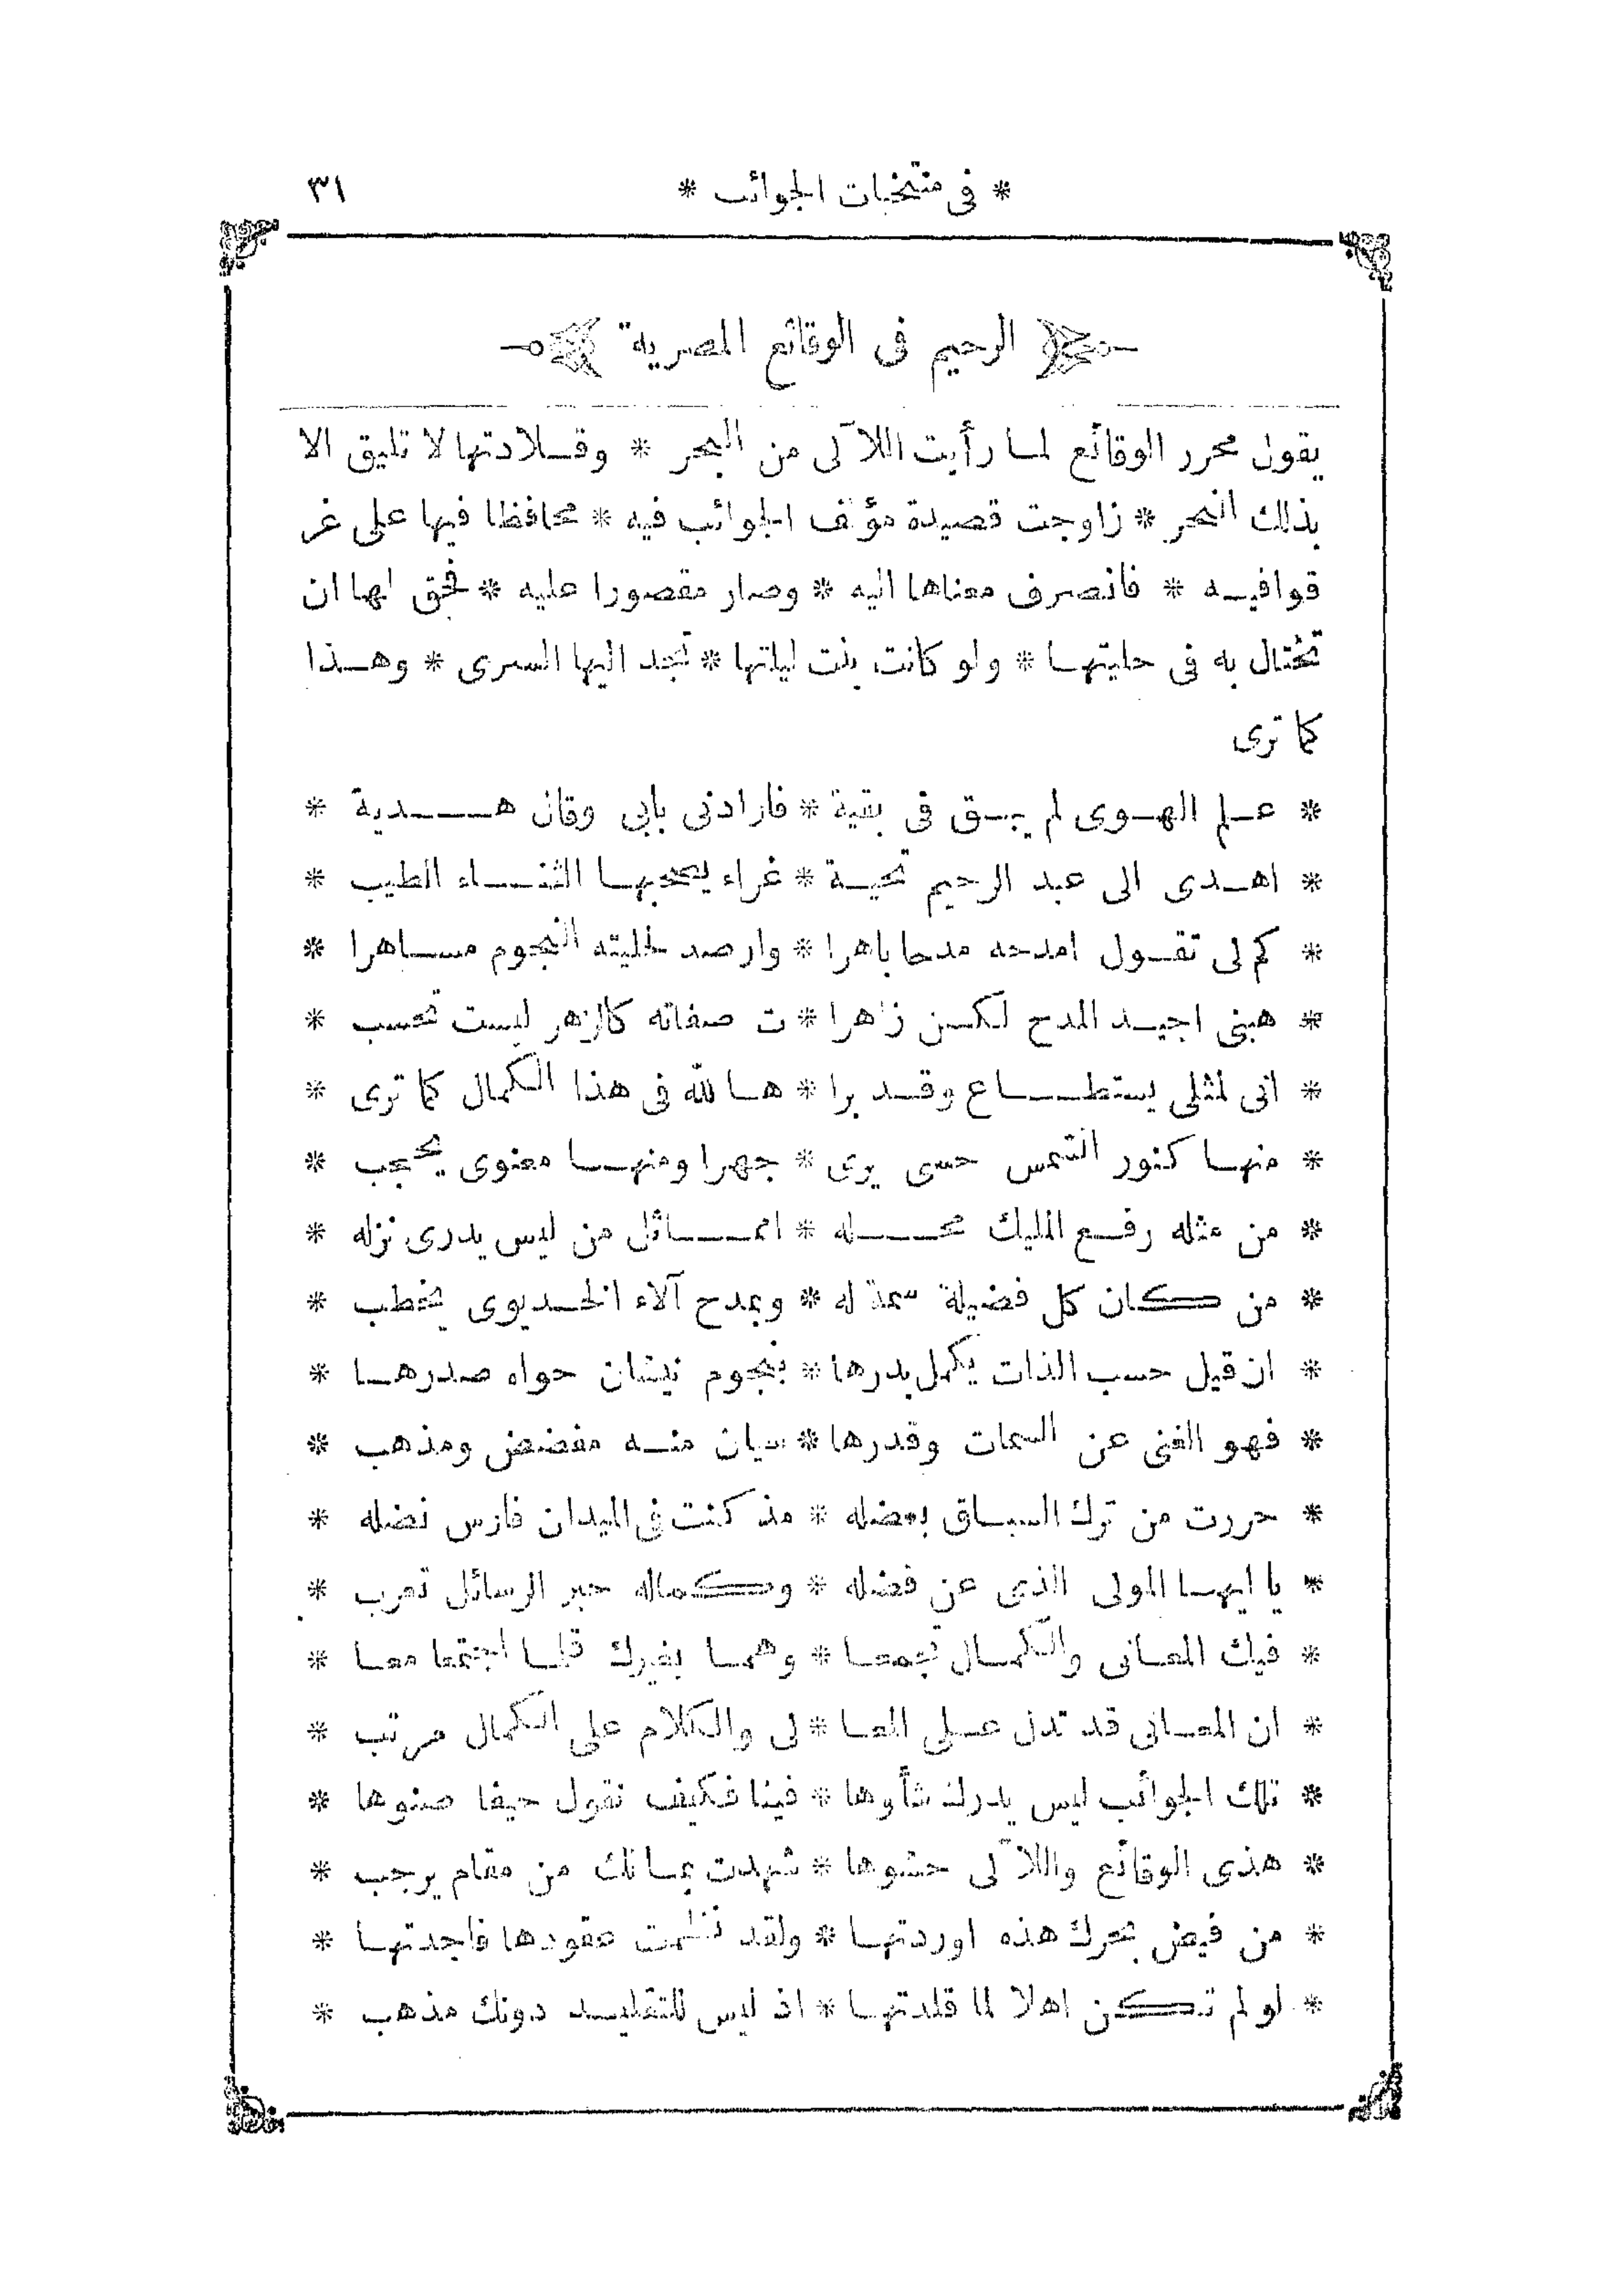 * فى منتخبات الجوائب * ٣١
الرحيم فى الوقائع المصرية
يقول محرر الوقائع لما رأيت اللآلى من البحر * وقلادتها لا تليق الا
بذلك النحر * زاوجت قصيدة مؤلف الجوائب فيه * محافظا فيها على غر
قوافيه * فانصرف معناها اليه * وصار مقصورا عليه * فحق لها ان
تختال به فى حليتها * ولو كانت بنت ليلتها * تجد اليها السرى * وهذا
كما ترى
* علم الهوى لم يبق فى بقية * فارادنى بابى وقال هدية *
* اهدى الى عبد الرحيم تحية * غراء يصحبها الثناء الطيب *
* كم لى تقول امدحه مدحا باهرا * وارصد لحليته النجوم مساهرا *
* هبنى اجيد المدح لكن زاهرا * ت صفاته كالزهر ليست تحسب *
* انى لمثلى يستطاع وقد برا * ها لله فى هذا الكمال كما ترى *
* منها كنور الشمس حسى يرى * جهرا ومنها معنوى يحجب *
* من مثله رفع المليك محله * ايماثل من ليس يدرى نزله *
* من كان كل فضيلة سمة له * وبمدح آلاء الخديوى يخطب *
* ان قيل حسب الذات يكمل بدرها * بنجوم نيشان حواه صدرها *
* فهو الغنى عن السمات وقدرها * سيان منه مفضض ومذهب *
* حررت من ترك السباق بعضله * مذ كنت فى الميدان فارس نضله *
* يا ايها المولى الذى عن فضله * وكماله حبر الرسائل تعرب *
* فيك المعانى والكمال تجمعا * وهما بغيرك قلما اجتمعا معا *
* ان المعانى قد تدل على المعا * لى والكلام على الكمال مرتب *
* تلك الجوائب ليس يدرك شأوها * فينا فكيف نقول حيفا صنوها *
* هذى الوقائع واللآلى حشوها * شهدت بمالك من مقام يرجب *
* من فيض بحرك هذه اوردتها * ولقد نظمت عقودها فاجدتها *
* لو لم تكن اهلا لما قلدتها * اذ ليس للتقليد دونك مذهب *